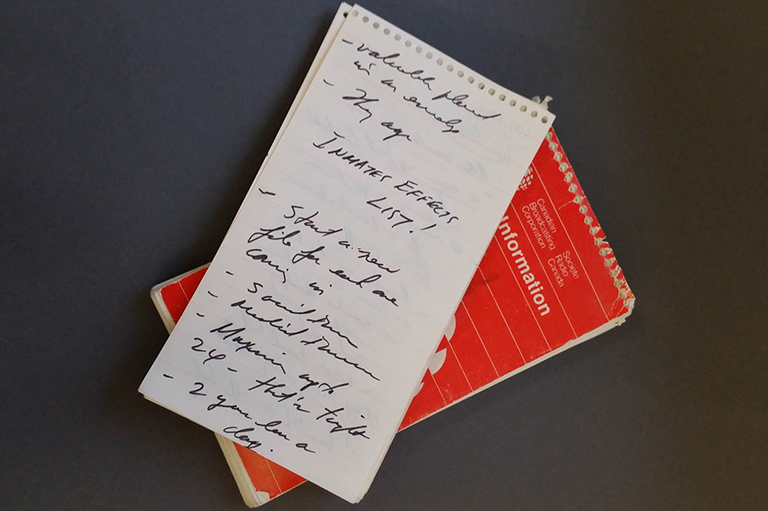 - valuables placed
in an envelope
- They sign
INMATES EFFECTS
LIST!
- Start a new
file for each one
coming in
- 
- Medical
- Maximum up to
24 - that's tight
- 2 you in a
Canadian
Broadcasting
Corporation
Société
Radio
Canada
Information